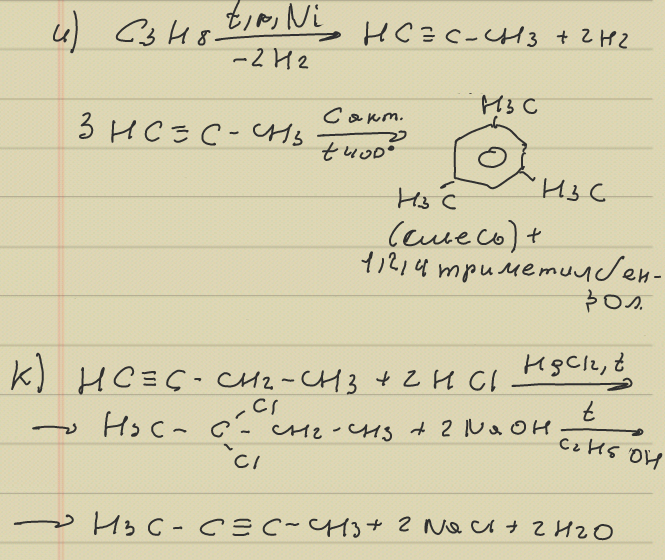 и) C3H8 t,p,Ni → HC≡C-CH3 + 2H2
-2H2
3 HC≡C-CH3 C акт. →
t 400°
H3C
H3C H3C
(смесь) +
1,2,4 триметилбен-
зол.
к) HC≡C-CH2-CH3 + 2HCl HgCl2, t →
→ H3C-C-CH2-CH3 + 2NaOH t →
Cl
Cl
C2H5OH
→ H3C-C≡C-CH3 + 2NaCl + 2H2O